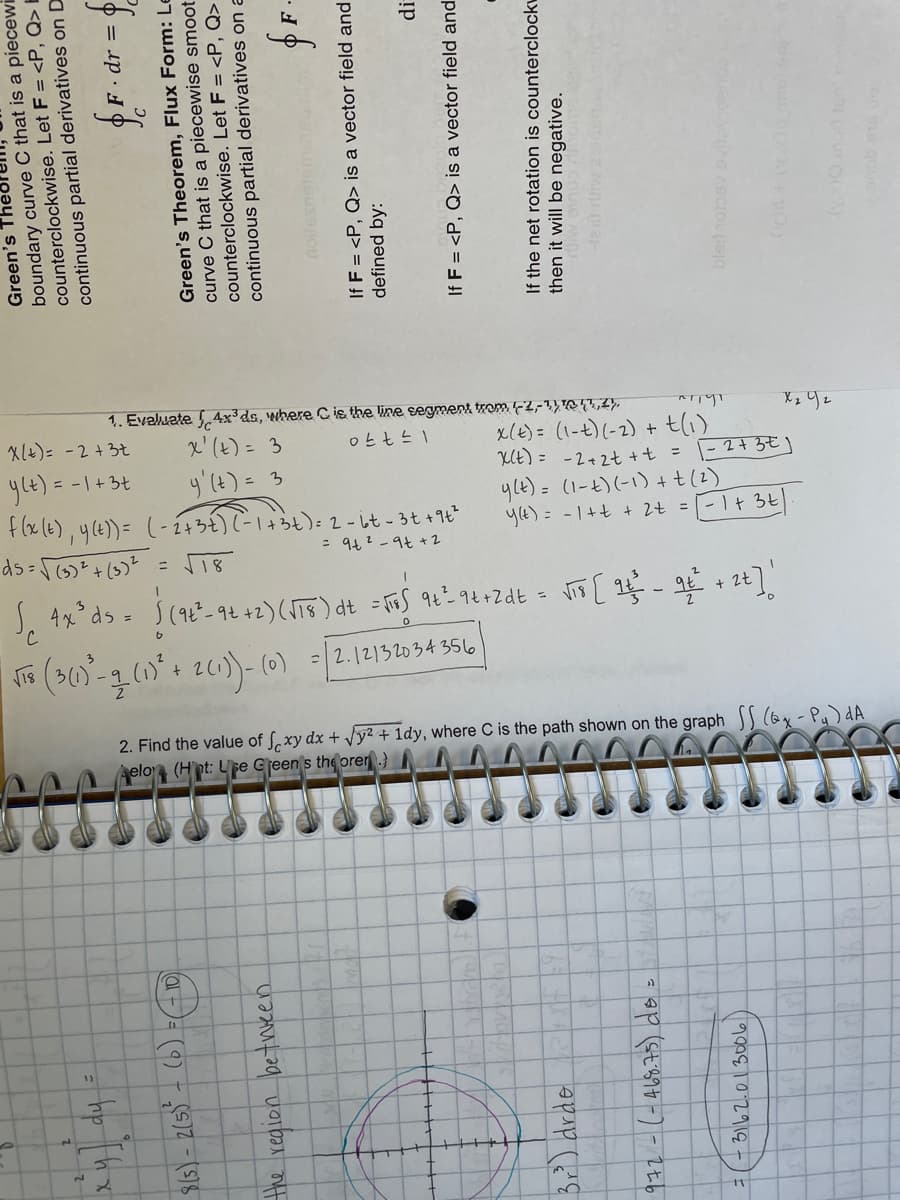 Green's Theorem,
boundary curve C that is a piecewi
counterclockwise. Let F = <P, Q>
continuous partial derivatives on D
∮_C F · dr = ∮
Green's Theorem, Flux Form: Le
curve C that is a piecewise smoot
counterclockwise. Let F = <P, Q>
continuous partial derivatives on a
∮ F ·
If F = <P, Q> is a vector field and
defined by:
di
If F = <P, Q> is a vector field and
If the net rotation is counterclockw
then it will be negative.
1. Evaluate ∫_C 4x³ds, where C is the line segment from (-2,-1) to (1,2).
x₂ y₂
x(t) = -2 + 3t x'(t) = 3 0 ≤ t ≤ 1 x(t) = (1-t)(-2) + t(1)
x(t) = -2 + 2t + t = -2 + 3t
y(t) = -1 + 3t y'(t) = 3 y(t) = (1-t)(-1) + t(2)
y(t) = -1 + t + 2t = -1 + 3t
f(x(t), y(t)) = (-2+3t)(-1+3t) = 2 - 6t - 3t + 9t²
= 9t² - 9t + 2
ds = √(3)² + (3)² = √18
∫_C 4x³ ds = ∫₀¹ (9t² - 9t + 2)(√18) dt = √18 ∫₀¹ 9t² - 9t + 2 dt = √18 [ 9t³/3 - 9t²/2 + 2t ]₀¹
√18 (3(1)³ - 9/2 (1)² + 2(1)) - (0) = 2.12132034356
2. Find the value of ∫_C xy dx + √y² + 1dy, where C is the path shown on the graph ∫∫ (Qx - Py) dA
below (Hint: Use Green's theorem.)
x² y² ]₀ dy =
8(5) - 2(5)² - (0) = -10
the region between
3r³) dr dθ
972 - (-468.75) dθ =
= -3162.013006